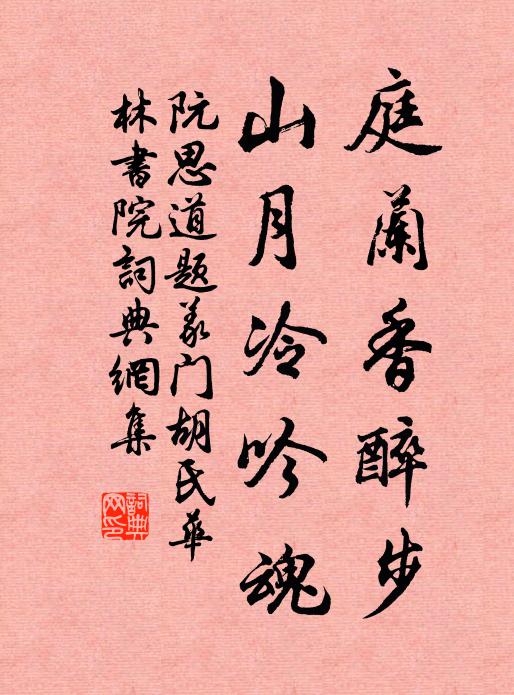 庭蘭香醉步
山月冷吟魂
阮思道題義门胡氏華
林書院詞典網集
詞典网印